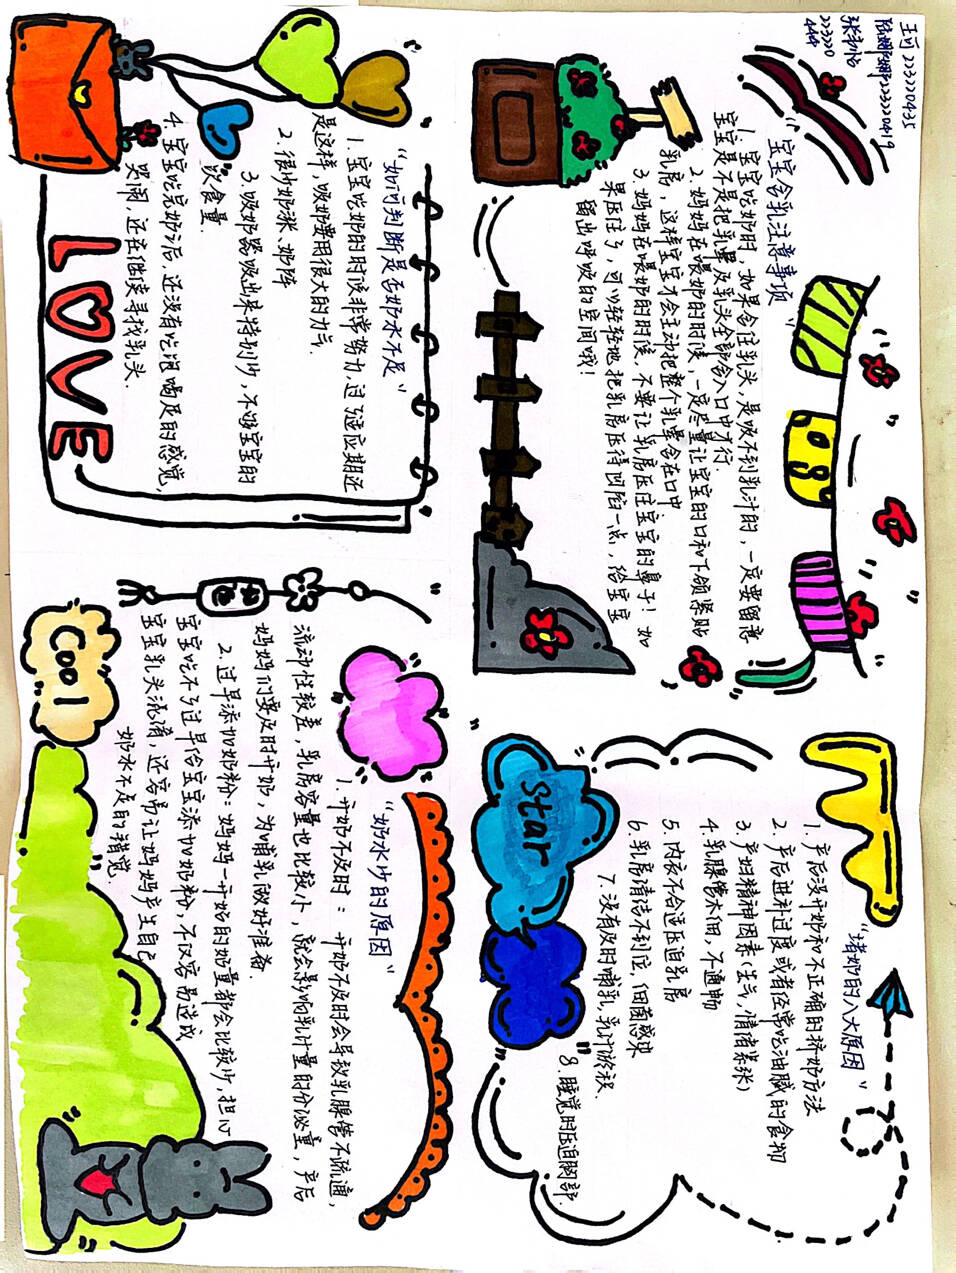 "宝宝含乳注意事项"
1. 宝宝吃奶时，如果含住乳头，是吸不到乳汁的，一定要留意
宝宝是不是把乳晕及乳头全部含入口中才行.
2. 妈妈在喂奶的时候，一定尽量让宝宝的口和下颌紧贴
乳房，这样宝宝才会主动把整个乳晕含在口中
3. 妈妈在喂奶的时候，不要让乳房压住宝宝的鼻子！如
果压住了，可以轻轻地把乳房压得凹陷一点，给宝宝
留出呼吸的空间哦！
"堵奶的八大原因"
1. 产后没开奶和不正确的挤奶方法
2. 产后进补过度或者经常吃油腻的食物
3. 产妇精神因素(生气,情绪紧张)
4. 乳腺管太细，不通畅
5. 内衣不合适压迫乳房
6. 乳房清洁不到位，细菌感染
7. 没有及时哺乳,乳汁淤积.
8. 睡觉时压迫胸部.
star
"如何判断是否奶水不足"
1. 宝宝吃奶的时候非常努力,过了适应期还
是这样，吸奶要用很大的力气.
2. 很少奶涨、奶阵
3. 吸奶器吸出来特别少，不够宝宝的
饮食量.
4. 宝宝吃完奶之后，还没有吃饱喝足的感觉，
哭闹，还在继续寻找乳头.
LOVE
"奶水少的原因"
1. 开奶不及时： 开奶不及时会导致乳腺管不疏通，
流动性较差，乳房容量也比较小，就会影响乳汁量的分泌量，产后
妈妈们要及时开奶，为哺乳做好准备.
2. 过早添加奶粉：妈妈一开始的奶量都会比较少，担心
宝宝吃不饱过早给宝宝添加奶粉，不仅容易造成
宝宝乳头混淆，还容易让妈妈产生自己
奶水不足的错觉.
平安
Cool